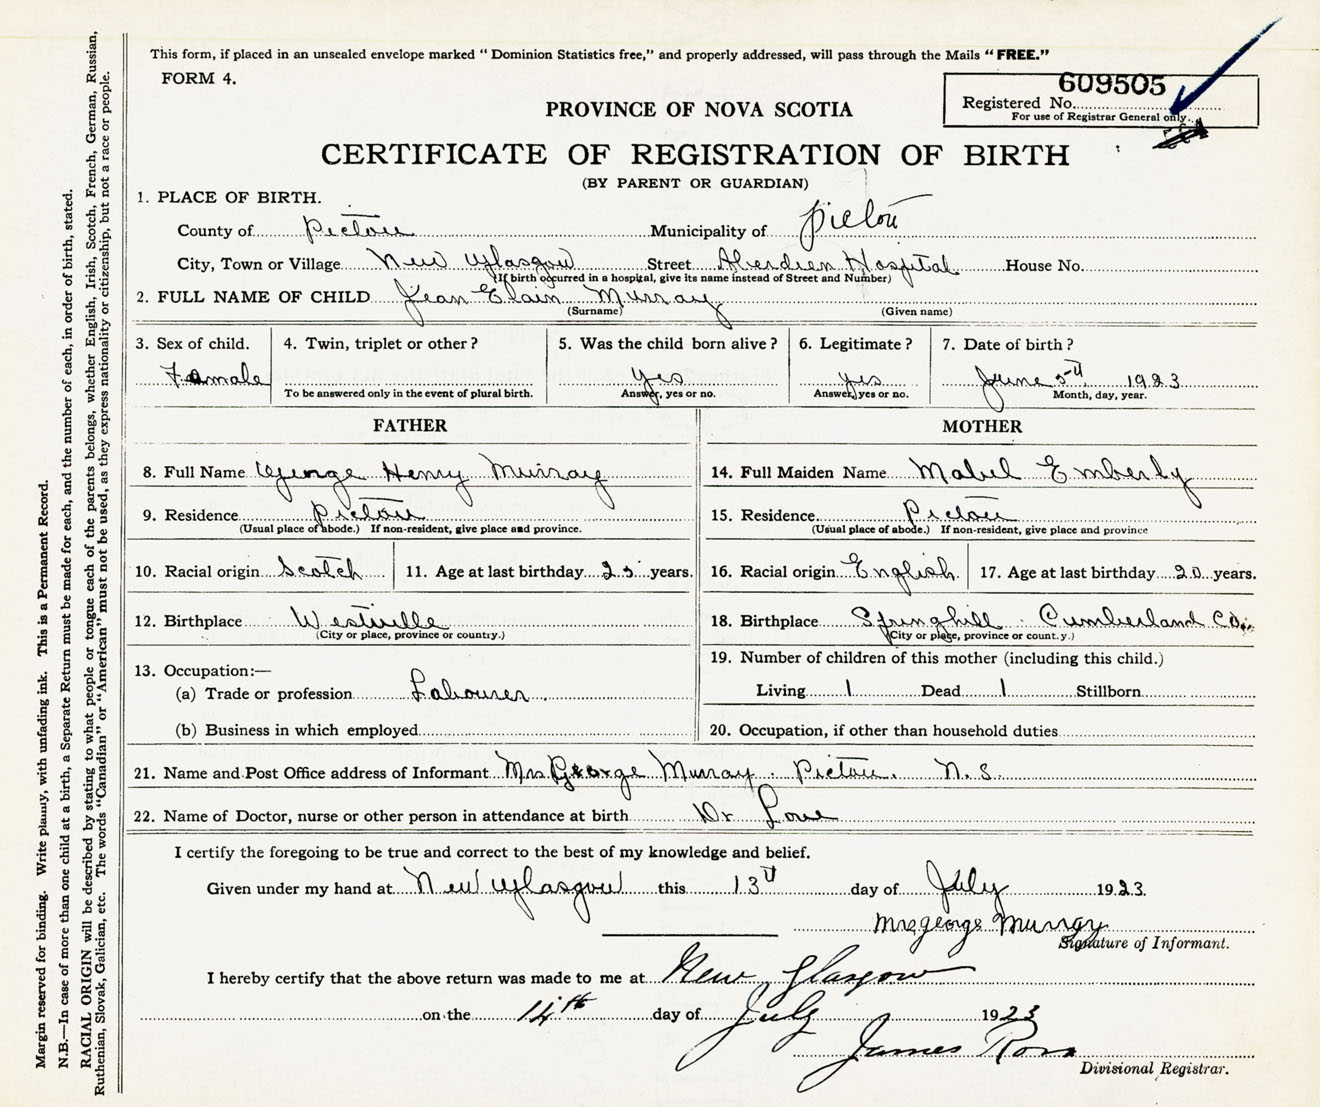 This form, if placed in an unsealed envelope marked "Dominion Statistics free," and properly addressed, will pass through the Mails "FREE."
FORM 4.
609505
Registered No.
For use of Registrar General only.
PROVINCE OF NOVA SCOTIA
CERTIFICATE OF REGISTRATION OF BIRTH
(BY PARENT OR GUARDIAN)
1. PLACE OF BIRTH.
County of Pictou Municipality of Pictou
City, Town or Village New Glasgow Street Aberdeen Hospital House No.
(If birth occurred in a hospital, give its name instead of Street and Number)
2. FULL NAME OF CHILD Jean Elain Murray
(Surname) (Given name)
3. Sex of child. 4. Twin, triplet or other? 5. Was the child born alive? 6. Legitimate? 7. Date of birth?
Female yes yes June 5th 1923
To be answered only in the event of plural birth. Answer, yes or no. Answer, yes or no. Month, day, year.
FATHER MOTHER
8. Full Name George Henry Murray 14. Full Maiden Name Mabel Emberly
9. Residence Pictou 15. Residence Pictou
(Usual place of abode.) If non-resident, give place and province. (Usual place of abode.) If non-resident, give place and province
10. Racial origin Scotch 11. Age at last birthday 25 years. 16. Racial origin English 17. Age at last birthday 20 years.
12. Birthplace Westville 18. Birthplace Springhill Cumberland Co.
(City or place, province or country.) (City or place, province or country.)
19. Number of children of this mother (including this child.)
13. Occupation:—
(a) Trade or profession Labourer Living 1 Dead 1 Stillborn
(b) Business in which employed 20. Occupation, if other than household duties
21. Name and Post Office address of Informant Mrs George Murray. Pictou. N.S.
22. Name of Doctor, nurse or other person in attendance at birth Dr Love
I certify the foregoing to be true and correct to the best of my knowledge and belief.
Given under my hand at New Glasgow this 13th day of July 1923.
Mrs george Murray
Signature of Informant.
I hereby certify that the above return was made to me at New Glasgow
on the 14th day of July 1923
James Ross
Divisional Registrar.
Margin reserved for binding. Write plainly, with unfading ink. This is a Permanent Record.
N.B.—In case of more than one child at a birth, a Separate Return must be made for each, and the number of each, in order of birth, stated.
RACIAL ORIGIN will be described by stating to what people or tongue each of the parents belongs, whether English, Irish, Scotch, French, German, Russian,
Ruthenian, Slovak, Galician, etc. The words "Canadian" or "American" must not be used, as they express nationality or citizenship, but not a race or people.